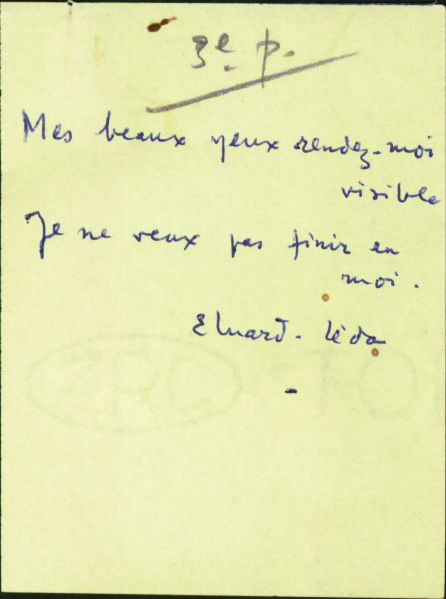 3e p.
Mes beaux yeux rendez-moi
visible
Je ne veux pas finir en
moi.
Eluard - Léda
-